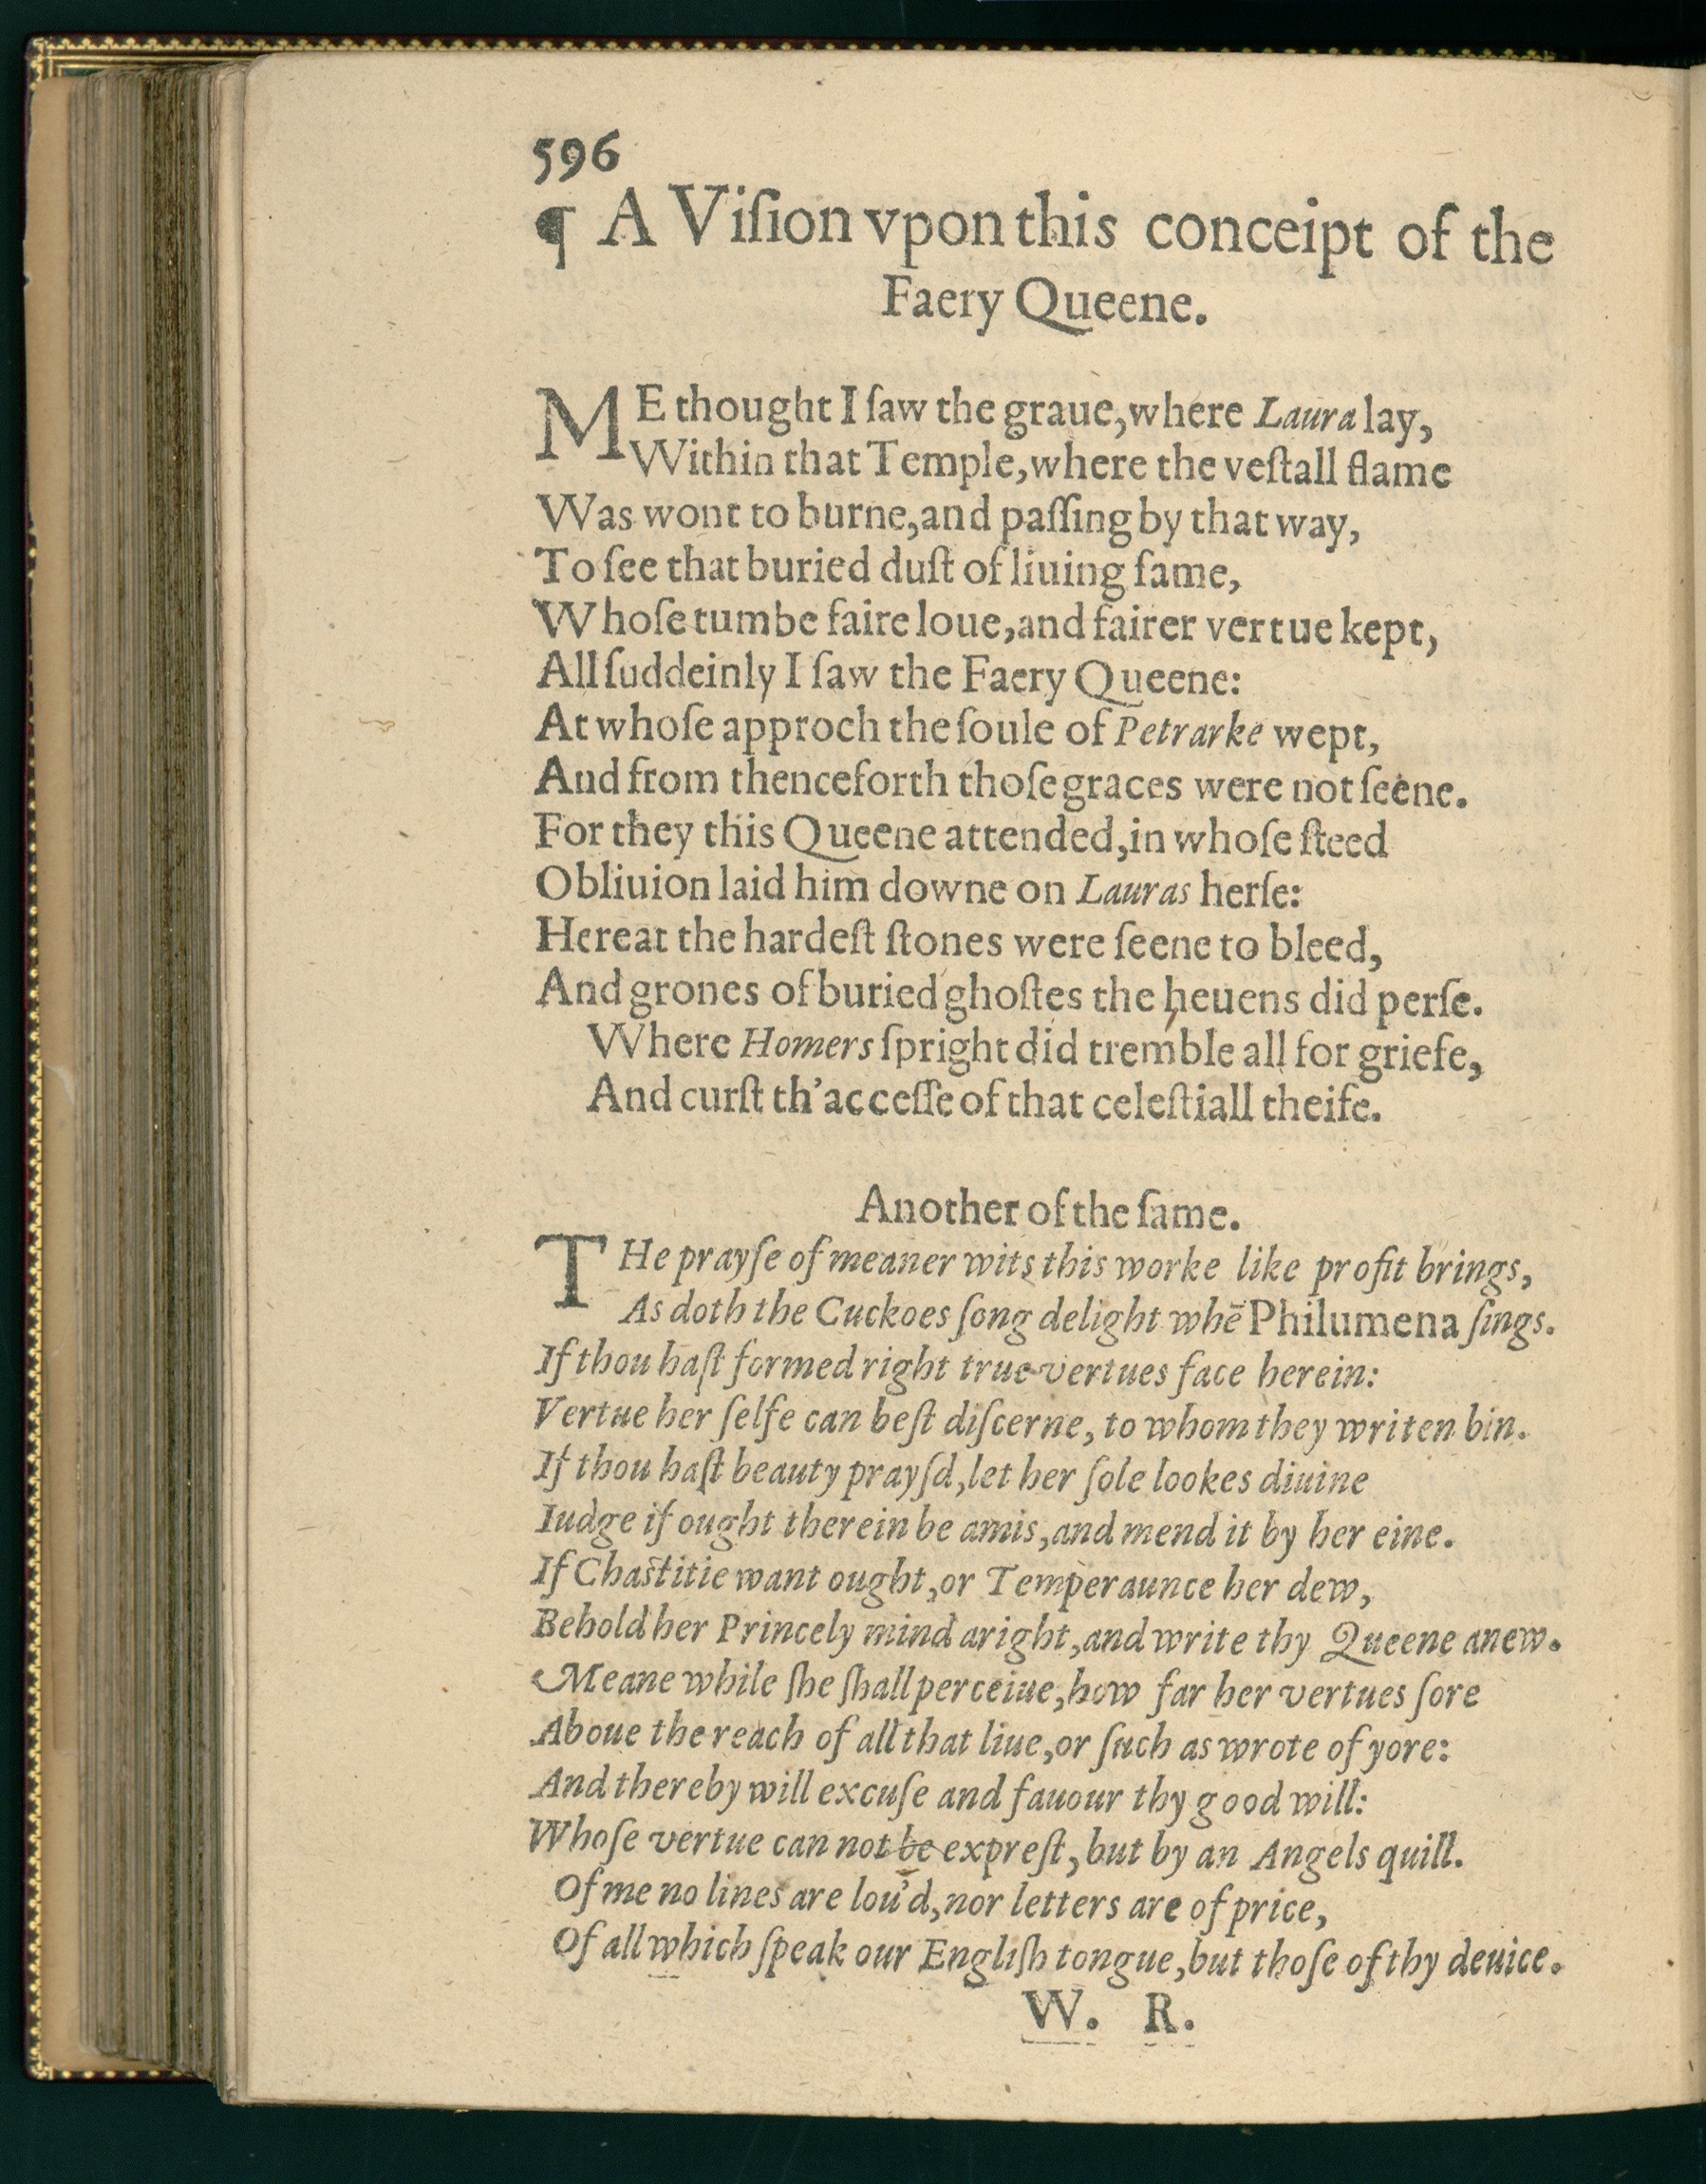 596
¶ A Viſion vpon this conceipt of the
Faery Queene.
ME thought I ſaw the graue, where Laura lay,
Within that Temple, where the veſtall flame
Was wont to burne, and paſſing by that way,
To ſee that buried duſt of liuing fame,
Whoſe tumbe faire loue, and fairer vertue kept,
All ſuddeinly I ſaw the Faery Queene:
At whoſe approch the ſoule of Petrarke wept,
And from thenceforth thoſe graces were not ſeene.
For they this Queene attended, in whoſe ſteed
Obliuion laid him downe on Lauras herſe:
Hereat the hardeſt ſtones were ſeene to bleed,
And grones of buried ghoſtes the heuens did perſe.
Where Homers ſpright did tremble all for griefe,
And curſt th'acceſſe of that celeſtiall theife.
Another of the ſame.
THe prayſe of meaner wits this worke like profit brings,
As doth the Cuckoes ſong delight whē Philumena ſings.
If thou haſt formed right true vertues face herein:
Vertue her ſelfe can beſt diſcerne, to whom they writen bin.
If thou haſt beauty prayſd, let her ſole lookes diuine
Iudge if ought therein be amis, and mend it by her eine.
If Chaſtitie want ought, or Temperaunce her dew,
Behold her Princely mind aright, and write thy Queene anew.
Meane while ſhe ſhall perceiue, how far her vertues ſore
Aboue the reach of all that liue, or ſuch as wrote of yore:
And thereby will excuſe and fauour thy good will:
Whoſe vertue can not be expreſt, but by an Angels quill.
Of me no lines are lou'd, nor letters are of price,
Of all which ſpeak our Engliſh tongue, but thoſe of thy deuice.
W. R.